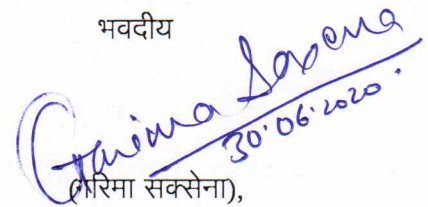 भवदीय
Garima Saxena
30.06.2020.
(गरिमा सक्सेना),